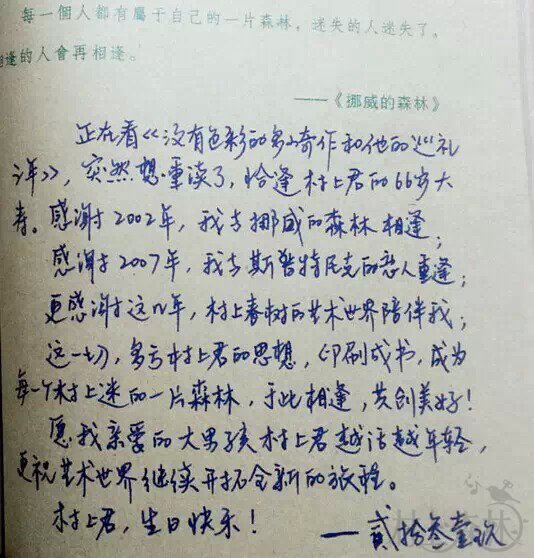 每一個人都有屬于自己的一片森林，迷失的人迷失了，
相逢的人會再相逢。
——《挪威的森林》
正在看《没有色彩的多崎作和他的巡礼
之年》，突然想重读了，恰逢村上君的66岁大
寿。感谢于2002年，我与挪威的森林相逢；
感谢于2007年，我与斯普特尼克的恋人重逢；
更感谢于这几年，村上春树的艺术世界陪伴我；
这一切，多亏村上君的思想，印刷成书，成为
每一个村上迷的一片森林，于此相逢，共创美好！
愿我亲爱的大男孩村上君越活越年轻，
更祝艺术世界继续开拓全新的旅程。
村上君，生日快乐！
——贰拾叁壹玖